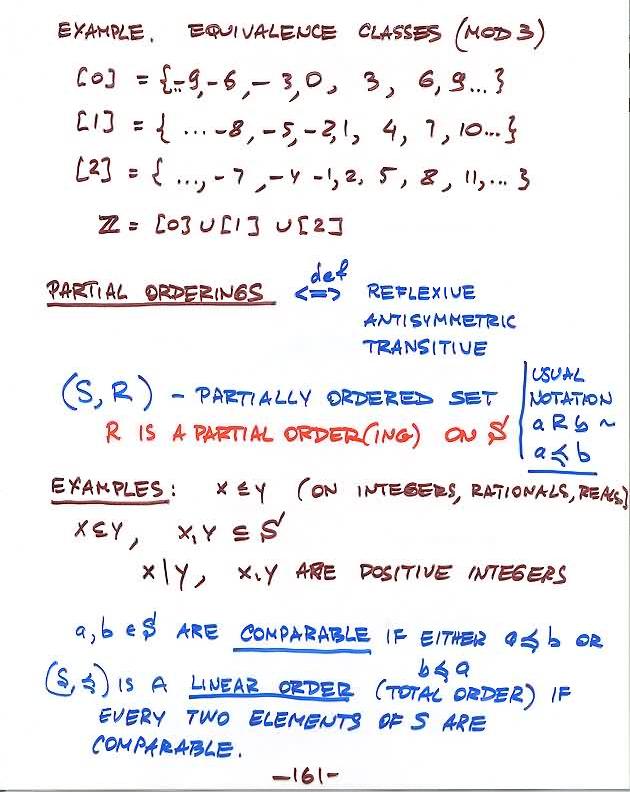 EXAMPLE. EQUIVALENCE CLASSES (MOD 3)
[0] = {..-9,-6,-3,0, 3, 6,9...}
[1] = { ...-8,-5,-2,1, 4, 7,10...}
[2] = { ...,-7,-4 -1,2, 5, 8, 11,...}
ℤ = [0] ∪ [1] ∪ [2]
PARTIAL ORDERINGS <=> def REFLEXIVE
ANTISYMMETRIC
TRANSITIVE
(S, R) - PARTIALLY ORDERED SET
R IS A PARTIAL ORDER(ING) ON S
USUAL
NOTATION
a R b ~
a ≼ b
EXAMPLES: X ≤ Y (ON INTEGERS, RATIONALS, REALS)
X ⊆ Y, X, Y ⊆ S
X | Y, X, Y ARE POSITIVE INTEGERS
a, b ∈ S ARE COMPARABLE IF EITHER a ≼ b OR
b ≼ a
(S, ≼) IS A LINEAR ORDER (TOTAL ORDER) IF
EVERY TWO ELEMENTS OF S ARE
COMPARABLE.
-161-